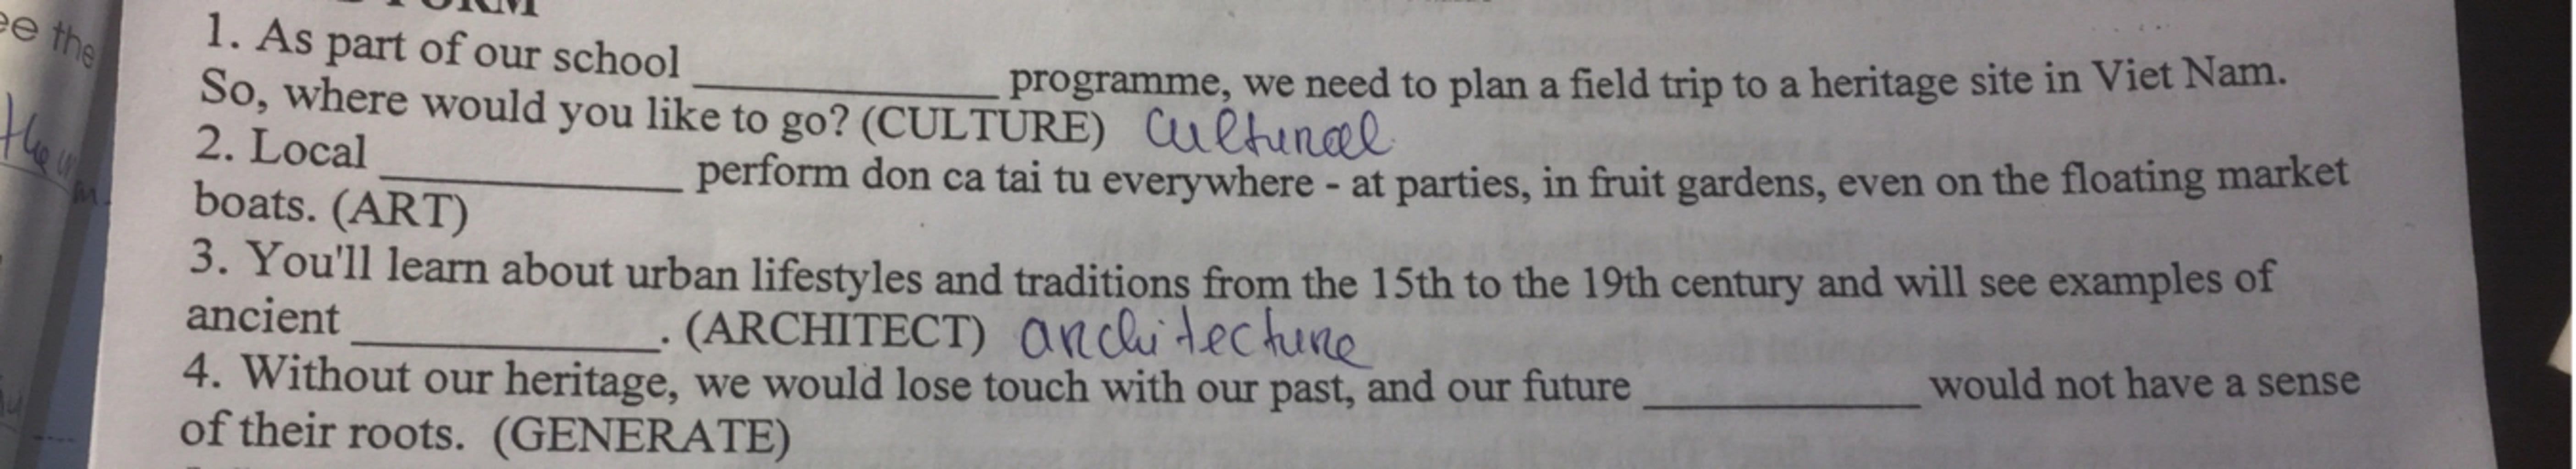 ee the
them
FORM
1. As part of our school ____________ programme, we need to plan a field trip to a heritage site in Viet Nam.
So, where would you like to go? (CULTURE) cultural
2. Local ____________ perform don ca tai tu everywhere - at parties, in fruit gardens, even on the floating market
boats. (ART)
3. You'll learn about urban lifestyles and traditions from the 15th to the 19th century and will see examples of
ancient ____________. (ARCHITECT) architecture
4. Without our heritage, we would lose touch with our past, and our future ____________ would not have a sense
of their roots. (GENERATE)